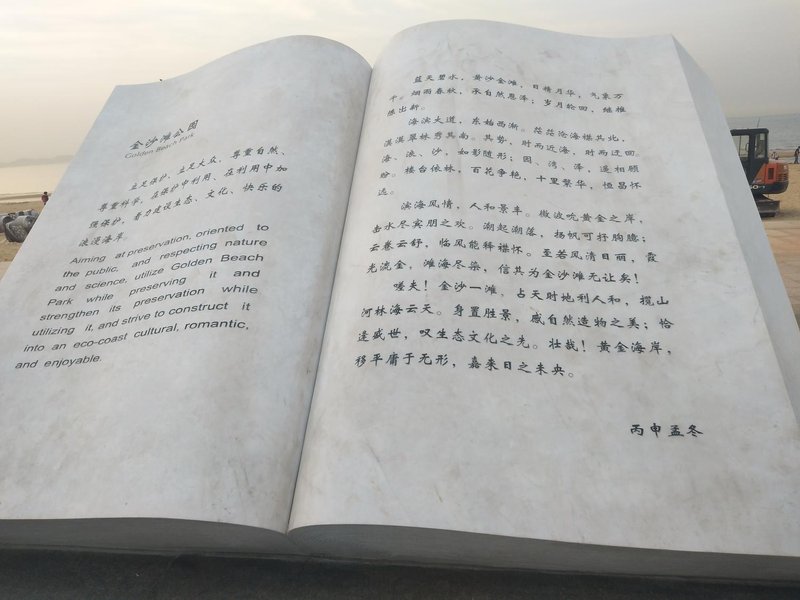 金沙滩公园
Golden Beach Park
立足保护、立足大众、尊重自然、
尊重科学，在保护中利用、在利用中加
强保护，着力建设生态、文化、快乐的
浪漫海岸。
Aiming at preservation, oriented to
the public, and respecting nature
and science, utilize Golden Beach
Park while preserving it and
strengthen its preservation while
utilizing it, and strive to construct it
into an eco-coast cultural, romantic,
and enjoyable.
蓝天碧水，黄沙金滩，日精月华，气象万
千。烟雨春秋，承自然恩泽；岁月轮回，继推
陈出新。
海滨大道，东始西渐。茫茫沧海襟其北，
漠漠翠林秀其南。其势，时而近海，时而迂回。
海、浪、沙，如影随形；园、湾、泽，遥相顾
盼。楼台依林，百花争艳，十里繁华，恒昌怀
远。
滨海风情，人和景丰。微波吮黄金之岸，
击水尽宾朋之欢。潮起潮落，扬帆可抒胸臆；
云卷云舒，临风能释襟怀。至若风清日丽，霞
光流金，滩海尽染，信其为金沙滩无让矣！
嗟夫！金沙一滩，占天时地利人和，揽山
河林海云天。身置胜景，感自然造物之美；恰
逢盛世，叹生态文化之光。壮哉！黄金海岸，
移平庸于无形，嘉来日之未央。
丙申孟冬